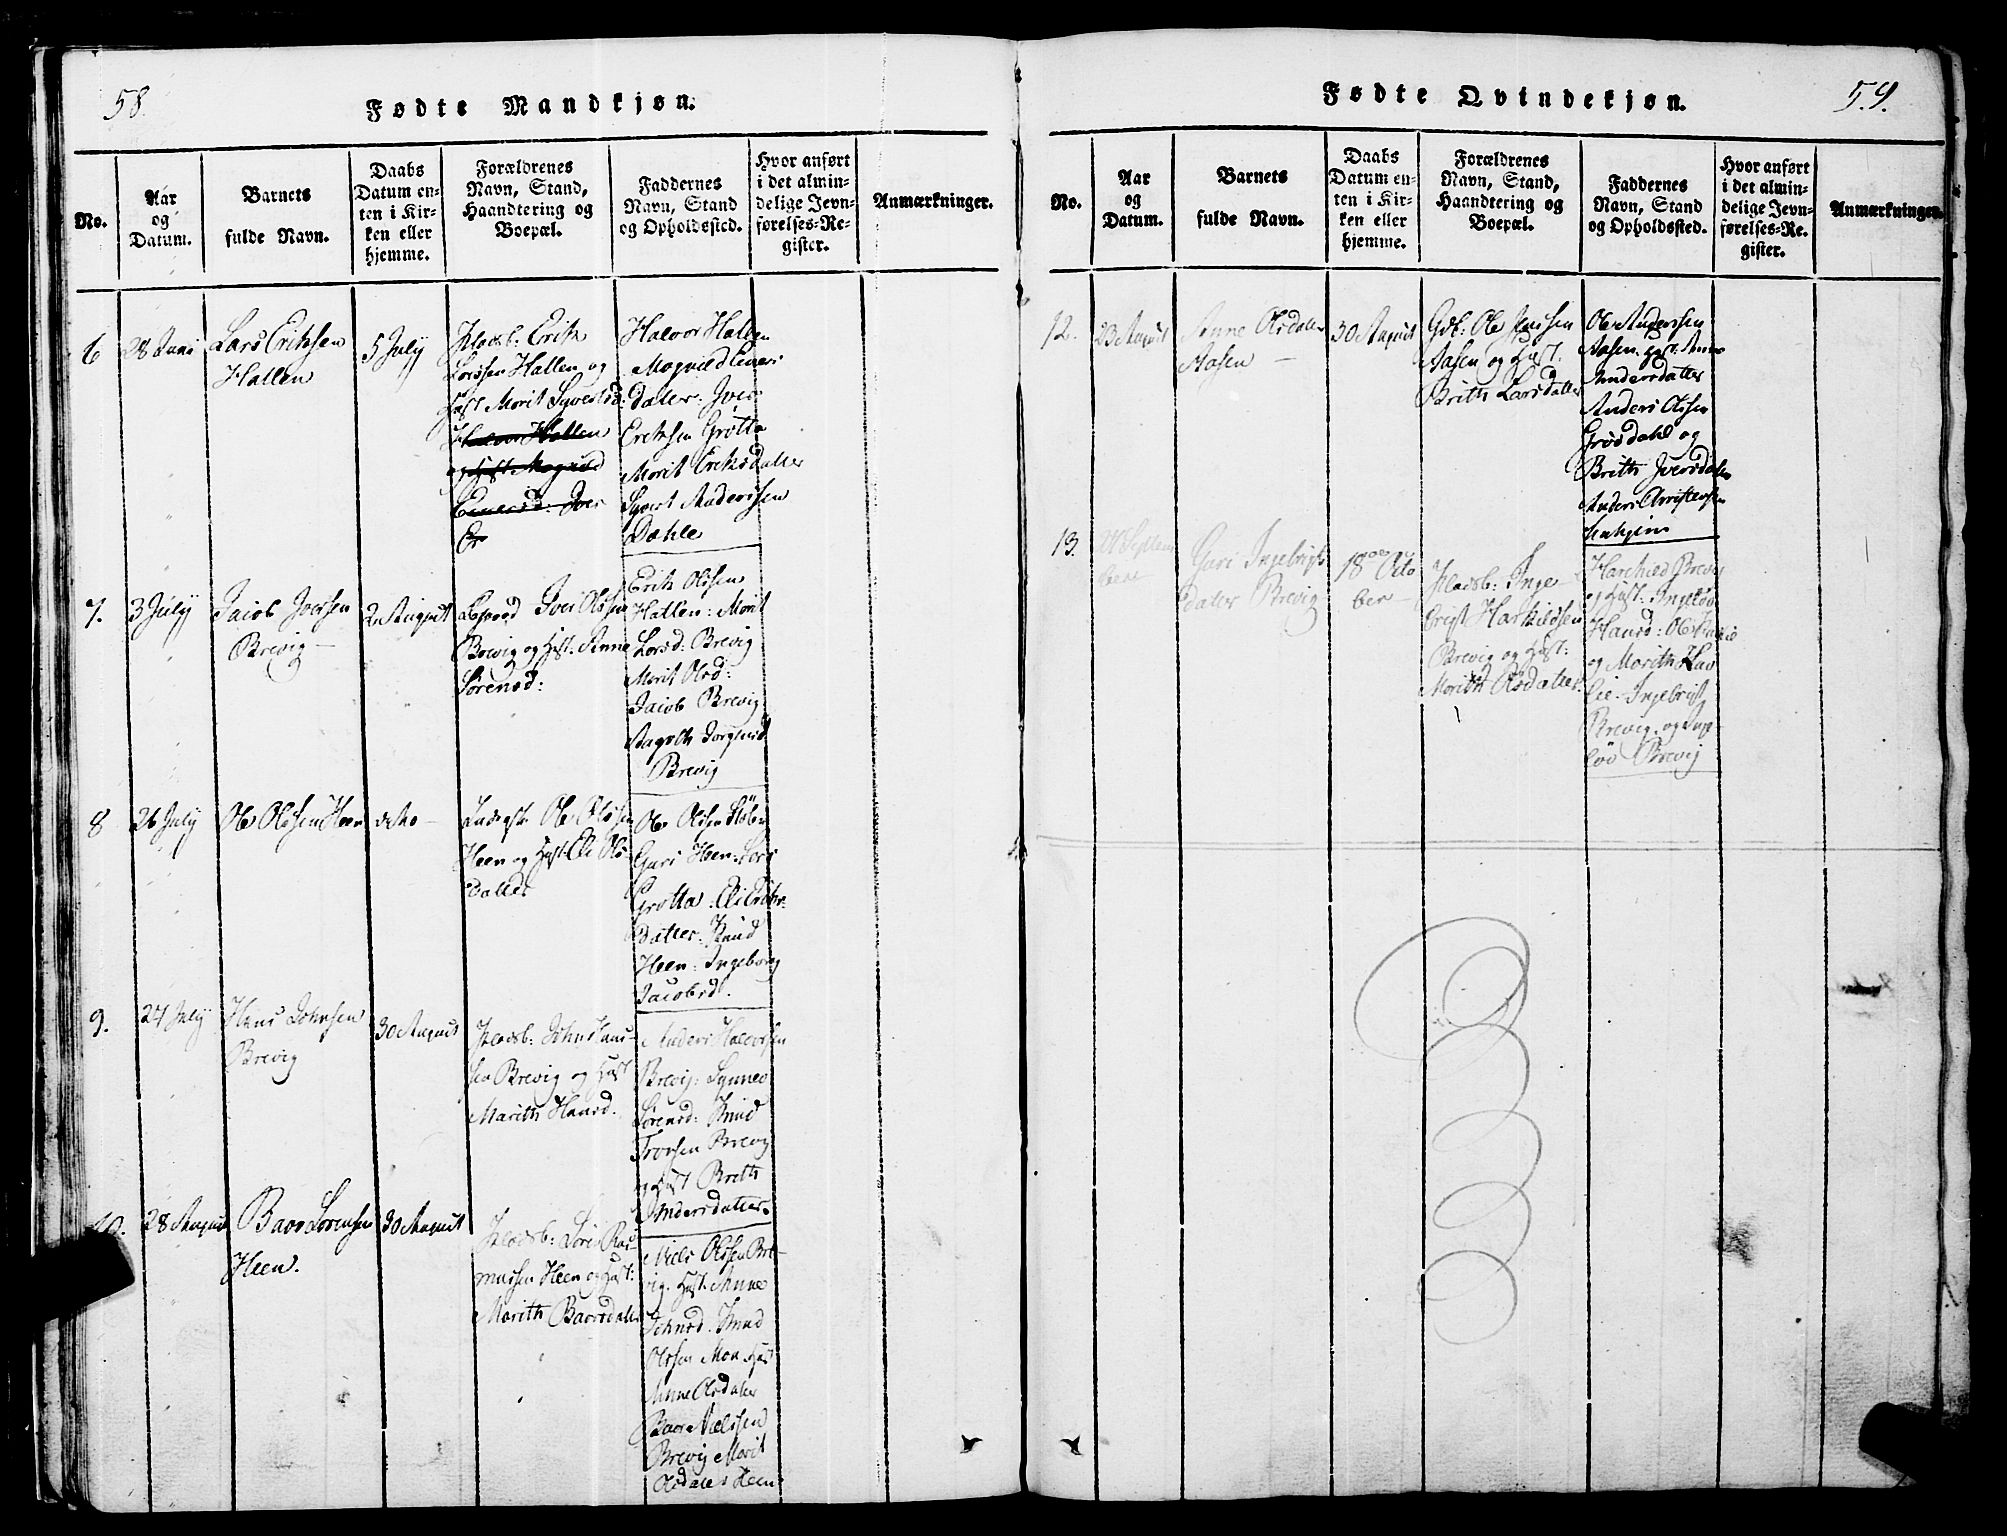 58.
Fødte Mandkjøn.
No.
Aar
og
Datum.
Barnets
fulde Navn.
Daabs
Datum en-
ten i Kir-
ken eller
hjemme.
Forældrenes
Navn, Stand,
Haandtering og
Boepæl.
Faddernes
Navn, Stand
og Opholdssted.
Hvor anført
i det almin-
delige Jevn-
førelses-Re-
gister.
Anmærkninger.
6
28 Juni
Lars Erichsen
Hatlen
5 July
Pladsb: Erik
Larssen Hatlen og
Hust Marit Syvertsd:
Halvor Hatlen
og Hust Magnild
Einersd: Iver
Er
Halvor Hatlen
Magnild Einers
dater. Iver
Erichsen Grøtta
Marit Eriksdatter
Syvert Anderssen
Dahle
7.
3 July
Jacob Iversen
Brevig
2 August
Iver Olssen
Brevig og Hust: Anne
Sørensd:
Erik Olssen
Hatlen: Marit
Larsd: Brevig
Marit Olsd:
Jacob Brevig
Brevig
8
26 July
Ole Olssen Heen
dito
Ole Olssen
Heen og Hust: Eli Ols-
datter
Ole Olssen
Guri Heen: Lars
Grøtta: Eli
datter. Knud
Heen: Ingeborg
Jacobsd.
9.
27 July
Hans Johnsen
Brevig
30 August
Pladsb: John Hans-
sen Brevig og Hust
Marith Hansd.
Anders Halvorsen
Brevig: Synnev
Sørensd: Knud
Brevig
og Hust Brith
Andersdatter
10.
28 August
Baar Sørensen
Heen.
30 August
Pladsb: Søren Ras-
mussen Heen og Hust:
Marith Baarsdatter
Niels Olssen Bre-
vig. Hust: Anne
Johnsd. Knud
Olssen Moe Hust
Anne Olsdatter
Baar Nielssen
Brevig Marit
Olsdater Heen
Fødte Qvindekjøn.
59.
No.
Aar
og
Datum.
Barnets
fulde Navn.
Daabs
Datum en-
ten i Kir-
ken eller
hjemme.
Forældrenes
Navn, Stand,
Haandtering og
Boepæl.
Faddernes
Navn, Stand
og Opholdssted.
Hvor anført
i det almin-
delige Jevn-
førelses-Re-
gister.
Anmærkninger.
12.
23 August
Anne Olsdater
Aasen
30 August
Gdb: Ole
Aasen og Hust.
Brith Larsdatter
Ole Anderssen
Aasen. Hust: Anne
Andersdatter
Anders Olssen
Grøsdahl og
Brith Iversdater
Anders Christensen
13.
Septem
ber
Guri Ingebrigts
dater Brevig
18de Octo
ber
Pladsb: Inge-
brigt Harkildsen
Brevig og Hust:
Marith Olsdatter
Harkild Brevig
og Hust: Ingeløv
Hansd: Ole
og Marith
Ingebrigt
Brevig. og Inge-
løv Brevig